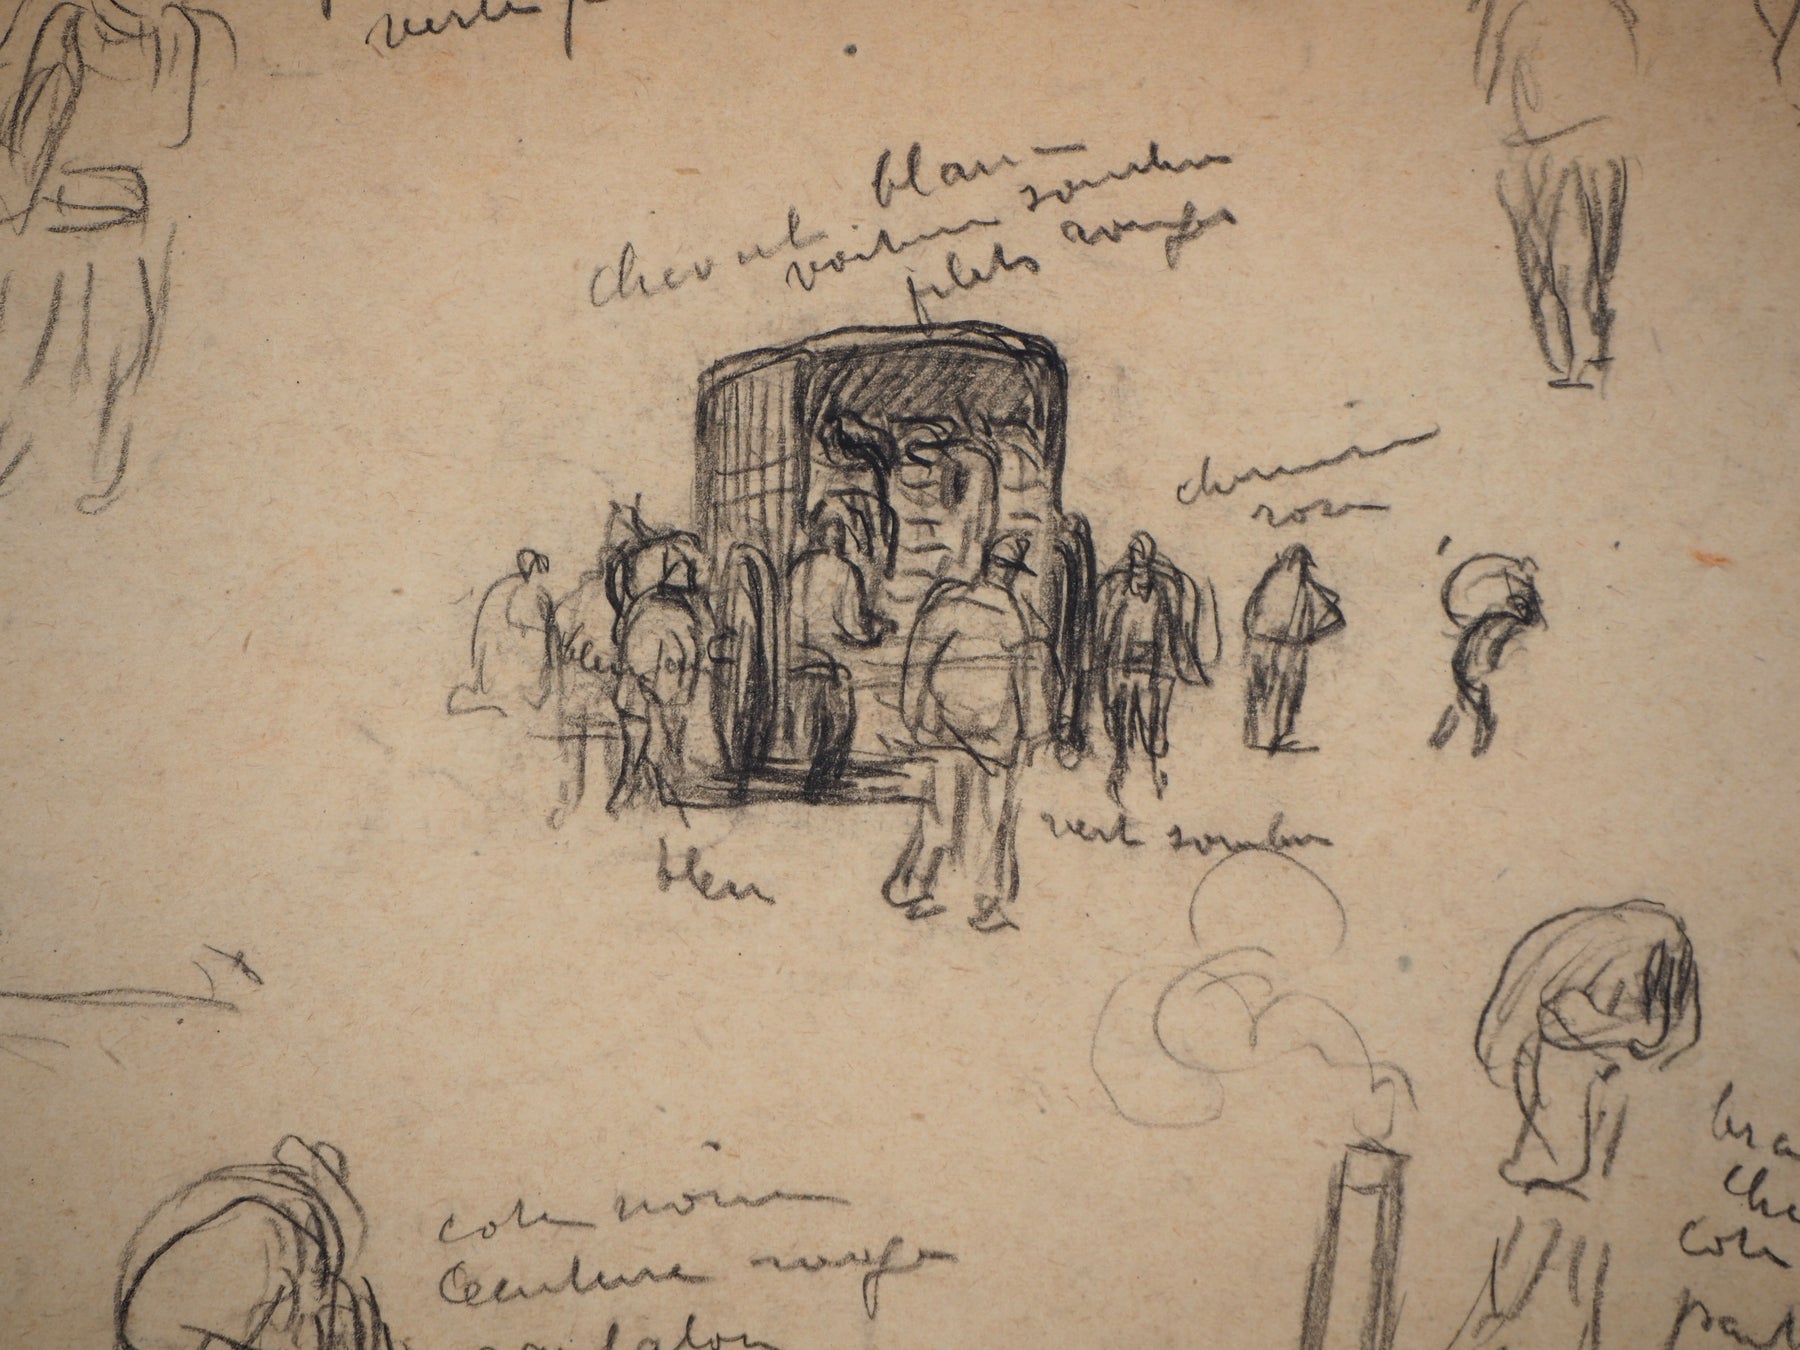 verte
blanc
cheval
voiture sombre
filets rouges
chemise
rose
bleu
bleu
vert sombre
cote noire
Ceinture rouge
pantalon
bra
che
cote
pant